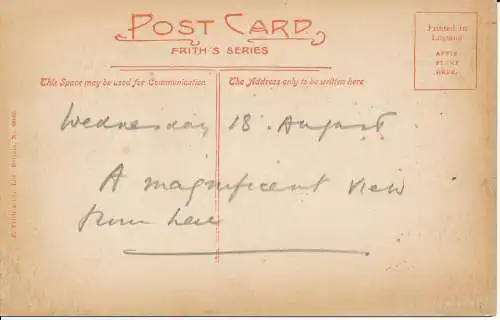 POST CARD
FRITH'S SERIES
Printed in England
AFFIX STAMP HERE.
This Space may be used for Communication.
The Address only to be written here.
Wednesday 18. August
A magnificent view
from here
F. Frith & Co., Ltd. Reigate,